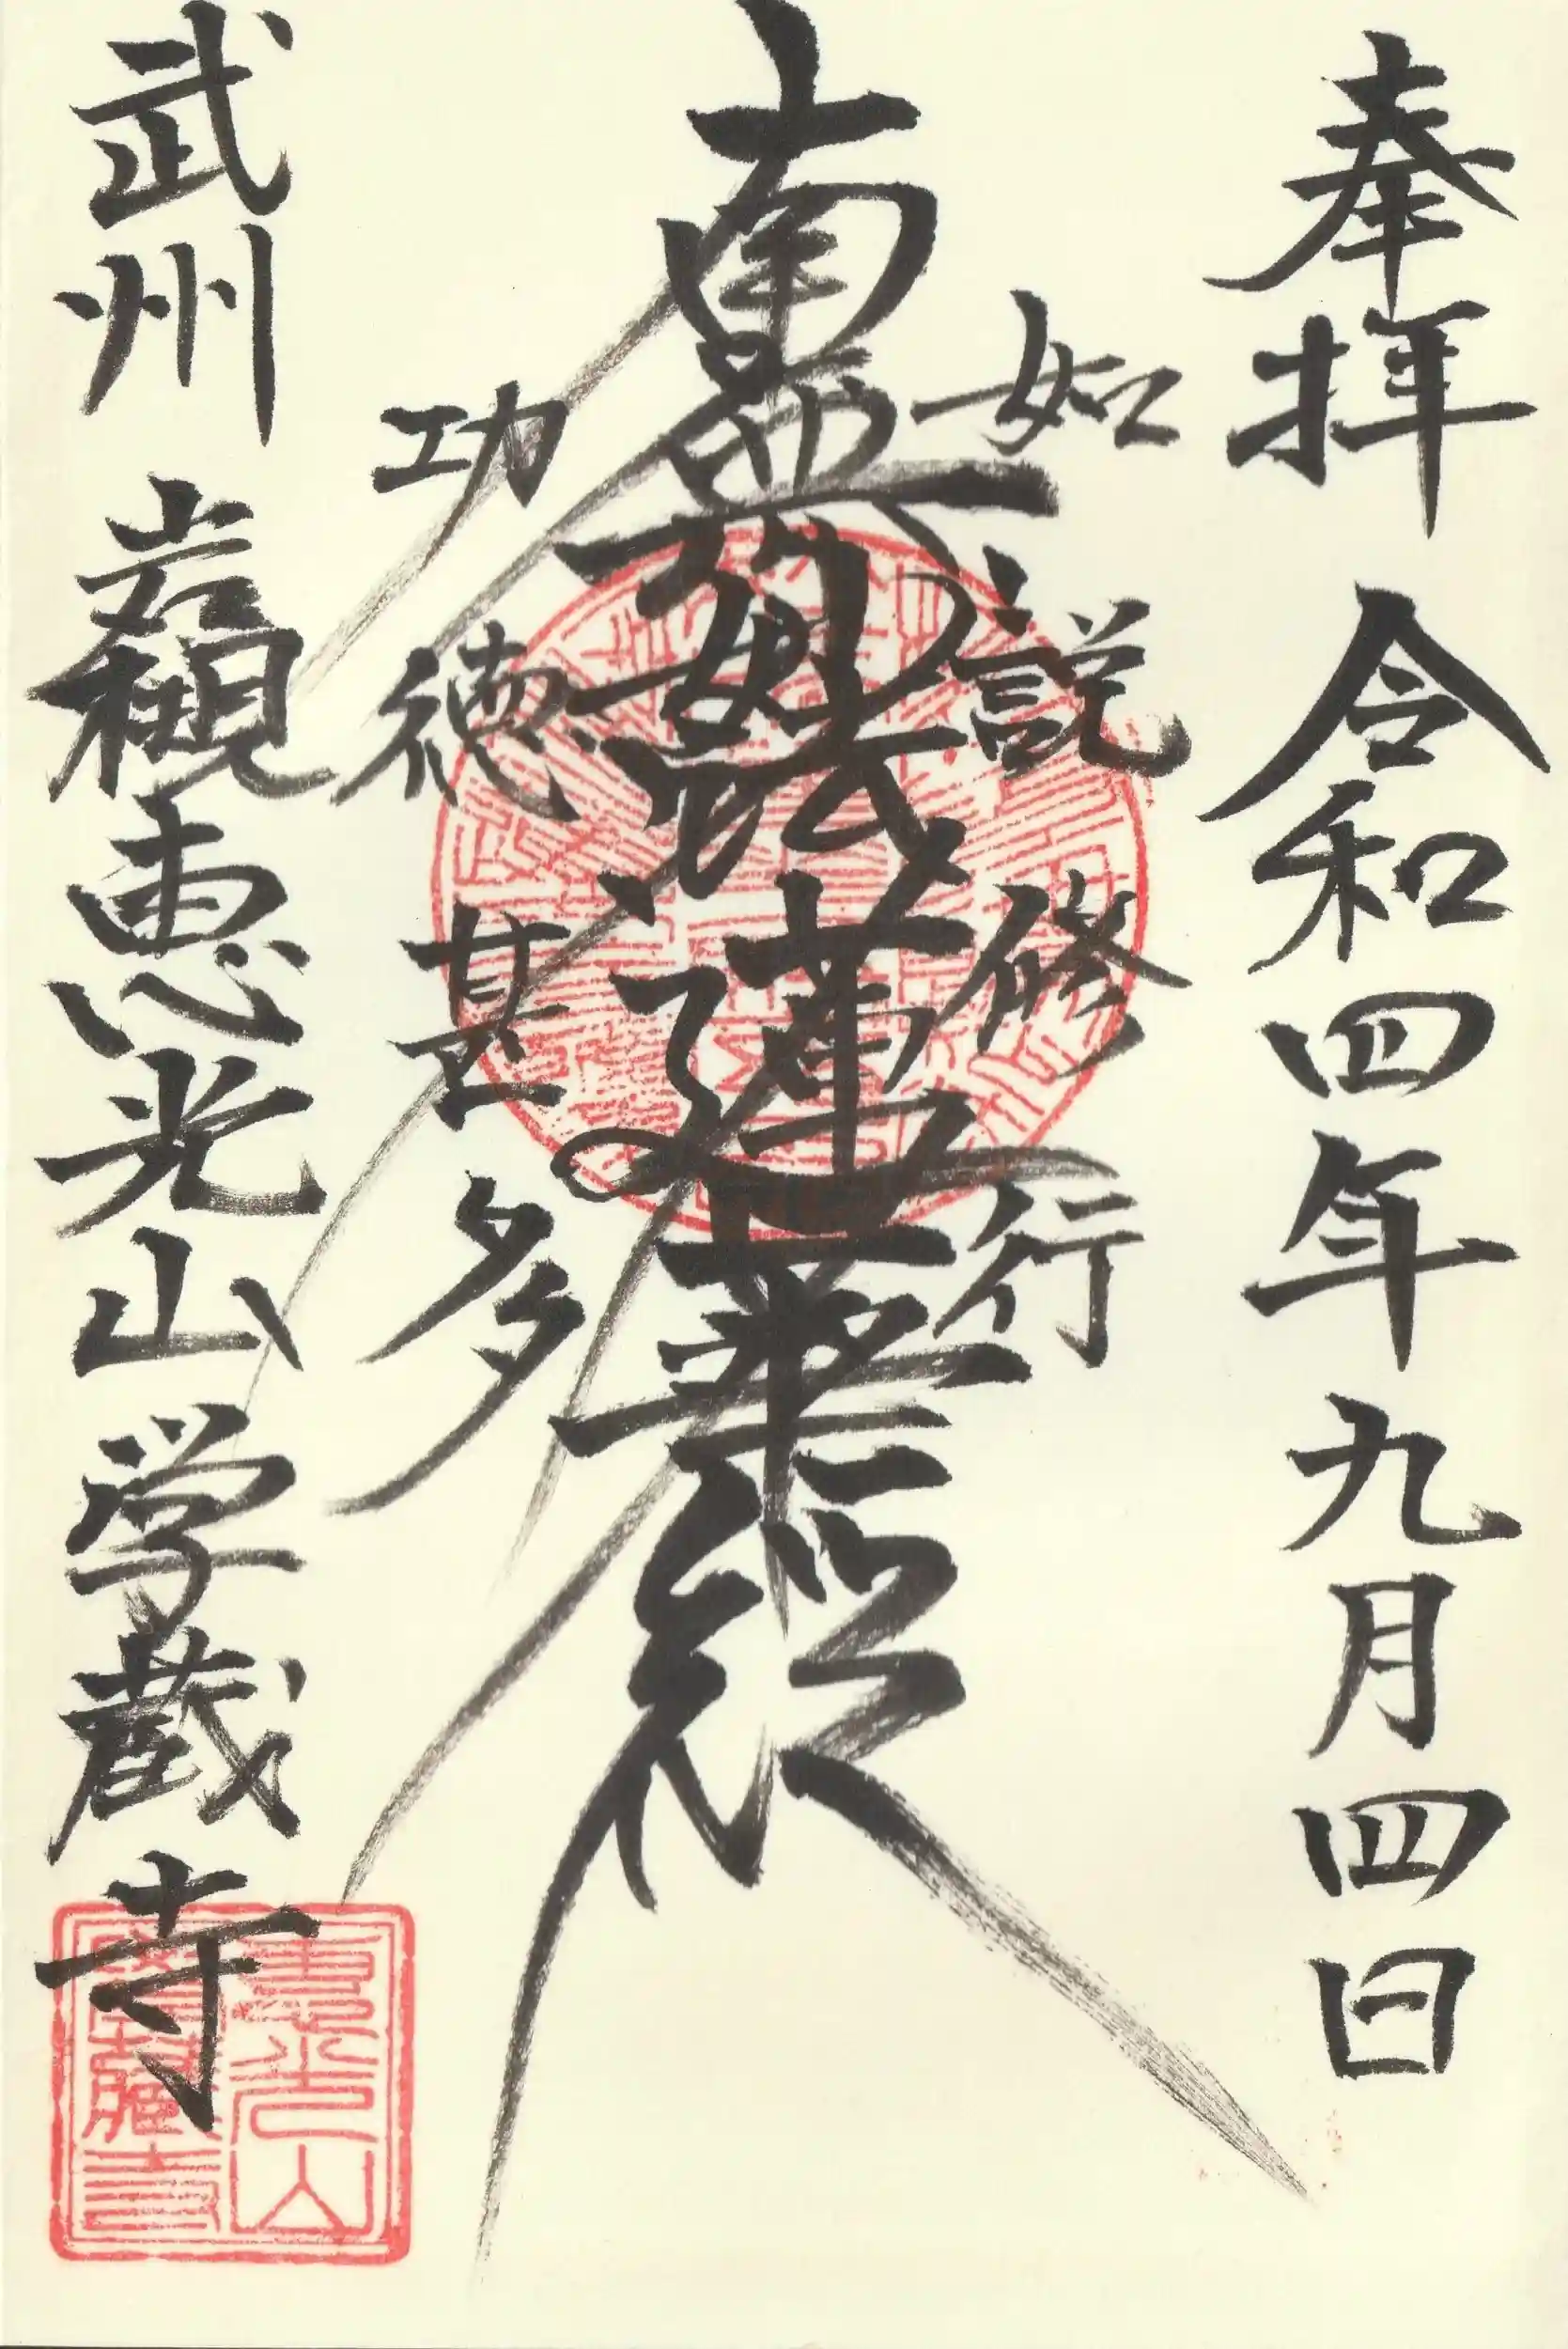 奉拝 令和四年九月四日
如説修行
南無妙法蓮華経
功徳甚多
武州 岩槻 恵光山 学蔵寺
恵光山
學藏寺